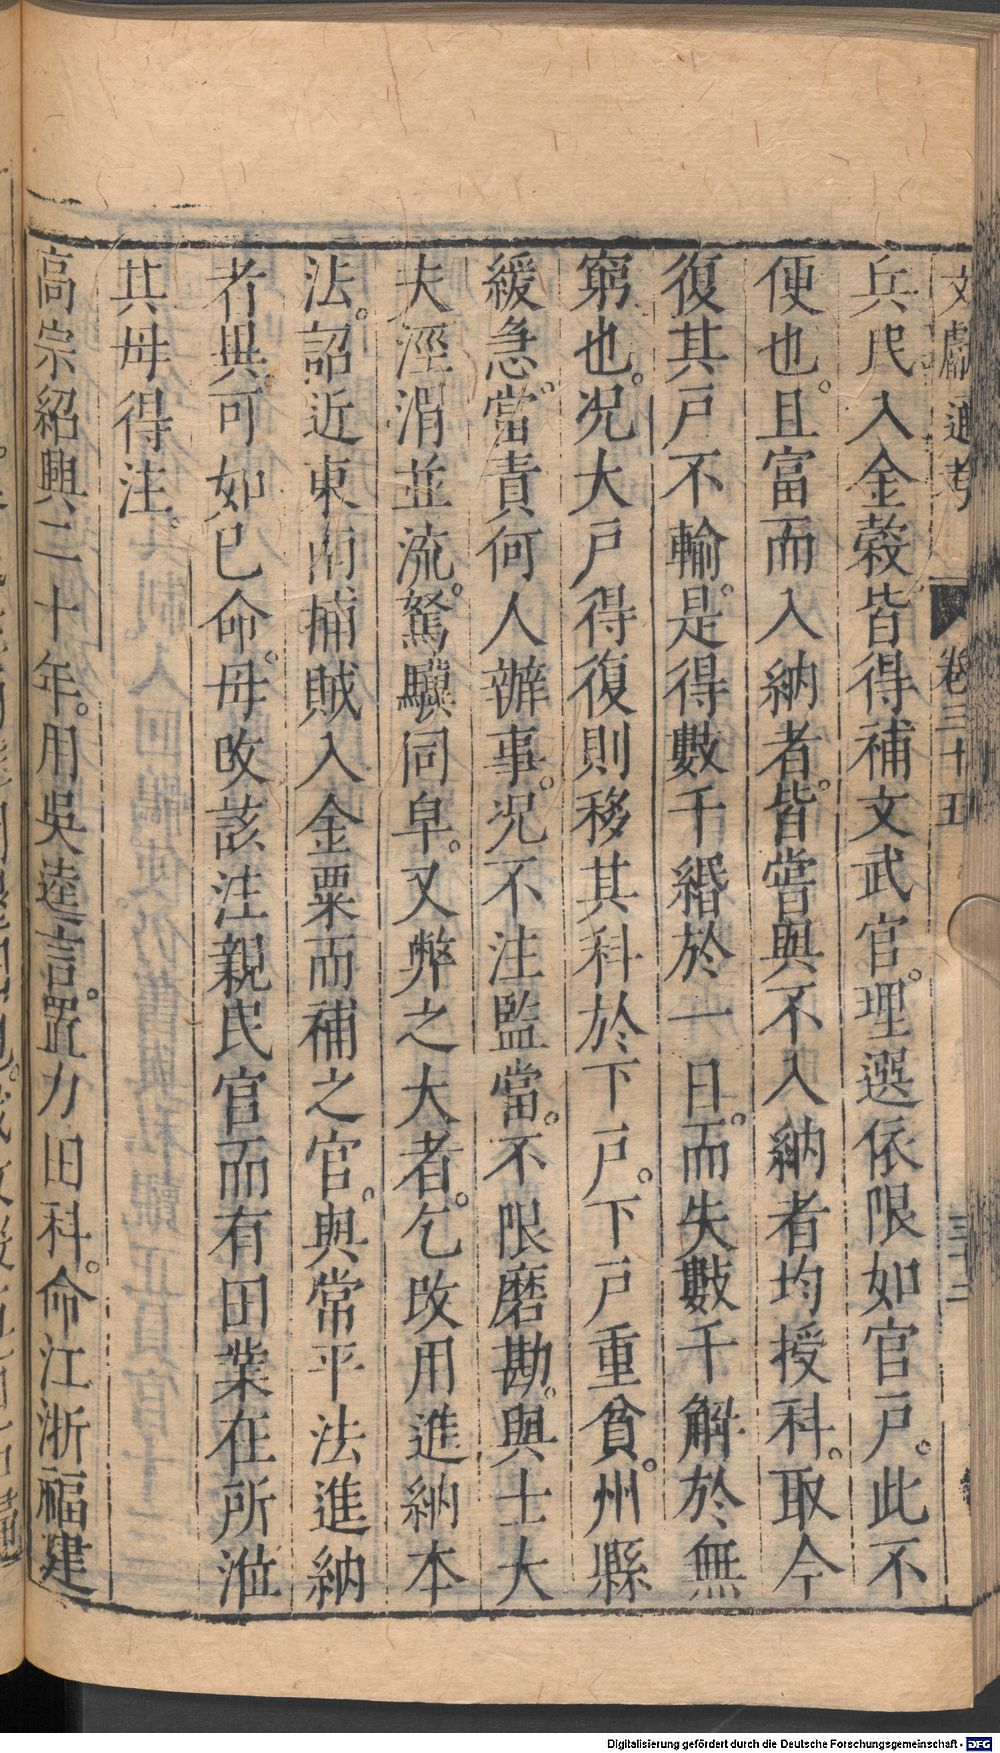 文獻通考 卷三十五 三十二
兵民入金穀皆得補文武官。理選依限如官戸。此不
便也。且富而入納者。皆嘗與不入納者均授科。取今
復其戸不輸。是得數千緡於一日。而失數千斛於無
窮也。况大戸得復則移其科於下戸。下戸重貧。州縣
緩急。當責何人辦事。况不注監當。不限磨勘。與士大
夫涇渭並流。駑驥同皁。又弊之大者。乞改用進納本
法。詔近東南捕賊入金粟而補之官。與常平法進納
者與可如已命。毋改該注親民官而有田業在所涖
其毋得注。
高宗紹興二十年。用吳逵言。置力田科。命江浙福建
Digitalisierung gefördert durch die Deutsche Forschungsgemeinschaft - DFG